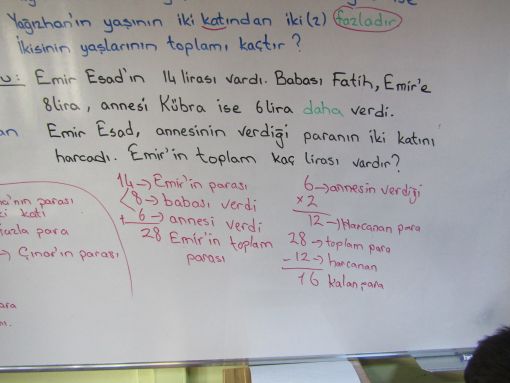 Yağızhan'ın yaşının iki katından iki (2) fazladır
İkisinin yaşlarının toplamı kaçtır?
U: Emir Esad'ın 14 lirası vardı. Babası Fatih, Emir'e
8lira, annesi Kübra ise 6lira daha verdi.
Emir Esad, annesinin verdiği paranın iki katını
harcadı. Emir'in toplam kaç lirası vardır?
14→Emir'in parası
8→babası verdi
+ 6→annesi verdi
28 Emir'in toplam
parası
6→annesin verdiği
x2
12→Harcanan para
28→toplam para
-12→harcanan
16 kalan para
nın parası
ki katı
fazla para
→Çınar'ın parası
para